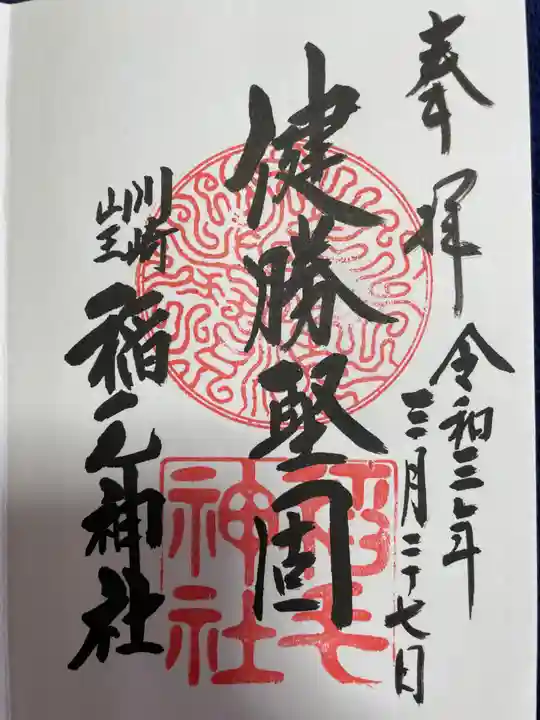 奉拝
令和三年
三月二十七日
健勝堅固
川崎
山王
稲毛神社
稲毛
神社